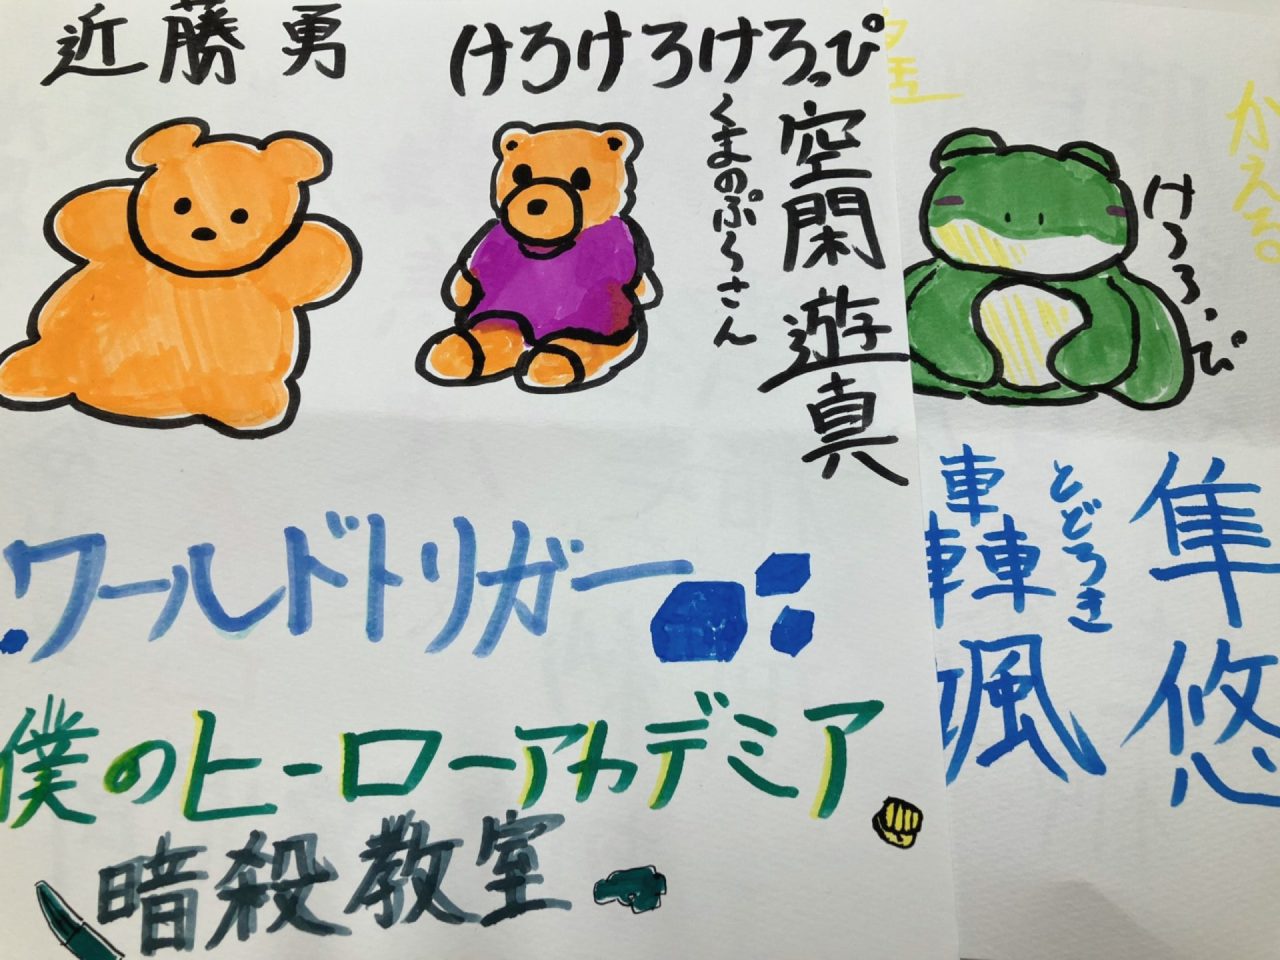 近藤勇
けろけろけろっぴ
くまのぷうさん
空閑遊真
かえる。
けろろっぴ
ワールドトリガー
僕のヒーローアカデミア
暗殺教室
隼悠
とどろき
轟颯